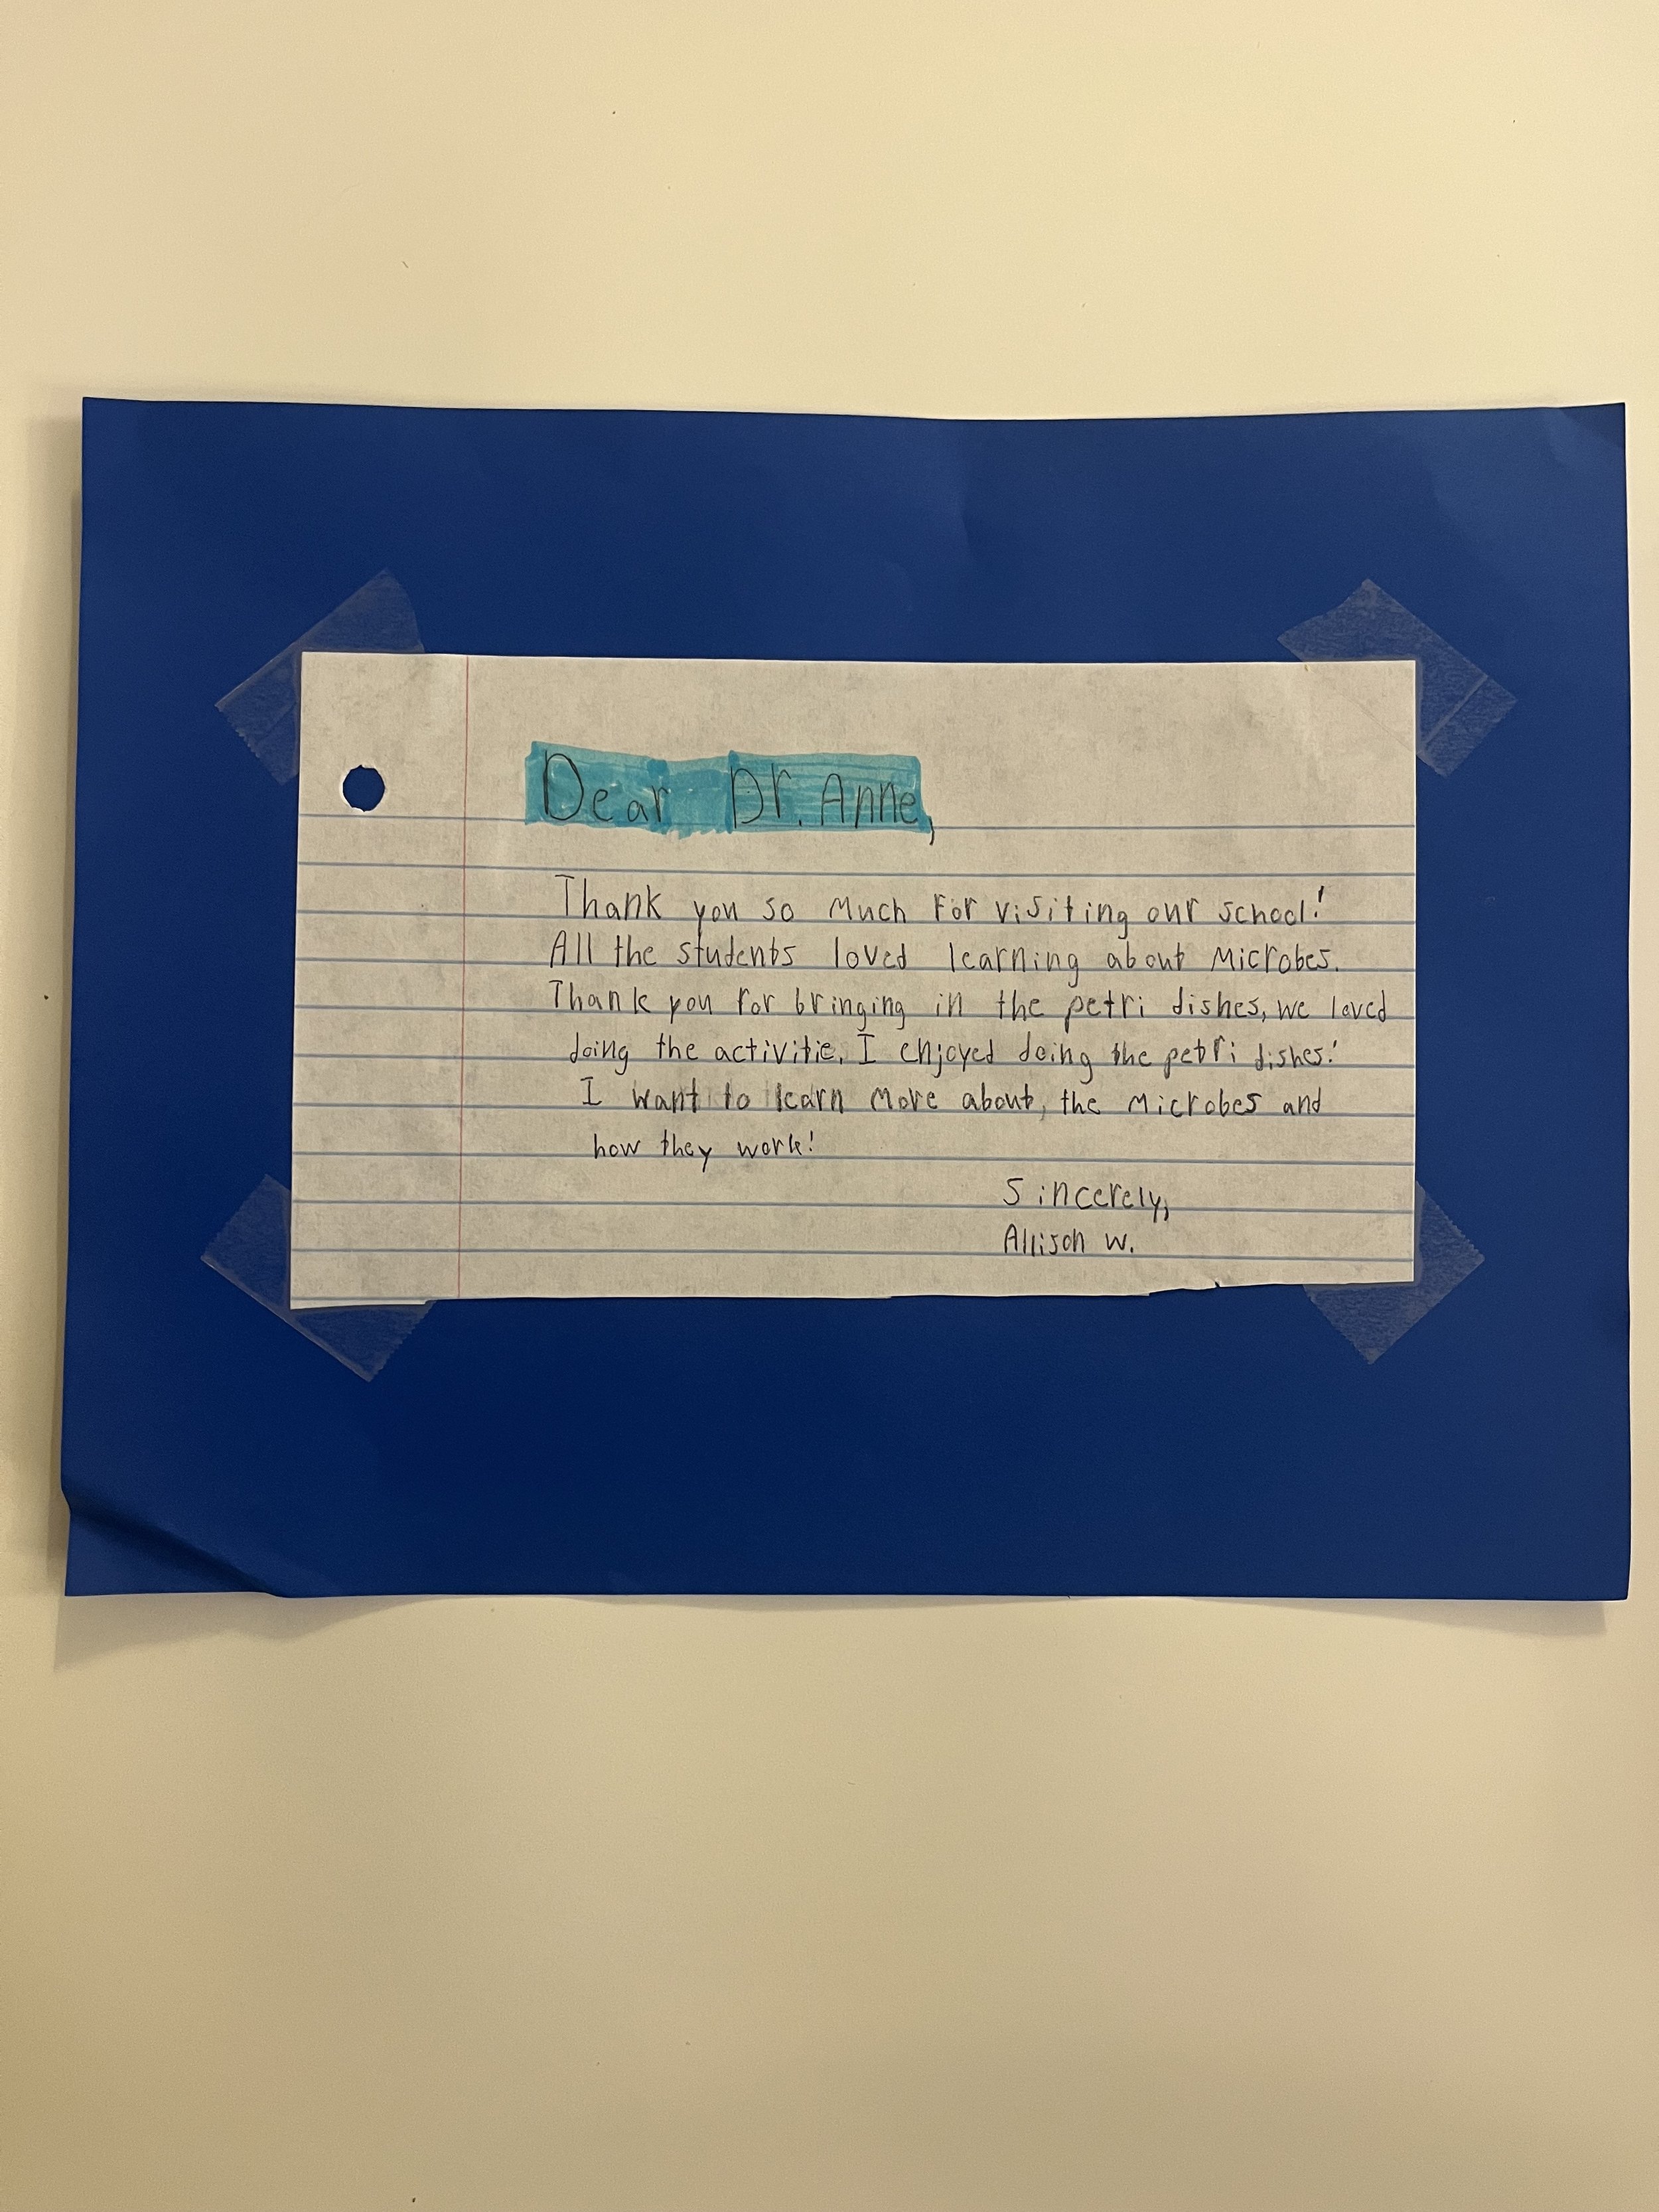 Dear Dr. Anne,
Thank you so much for visiting our school!
All the students loved learning about Microbes.
Thank you for bringing in the petri dishes, we loved
doing the activitie. I enjoyed doing the petri dishes!
I want to learn more about, the microbes and
how they work!
Sincerely,
Allison W.